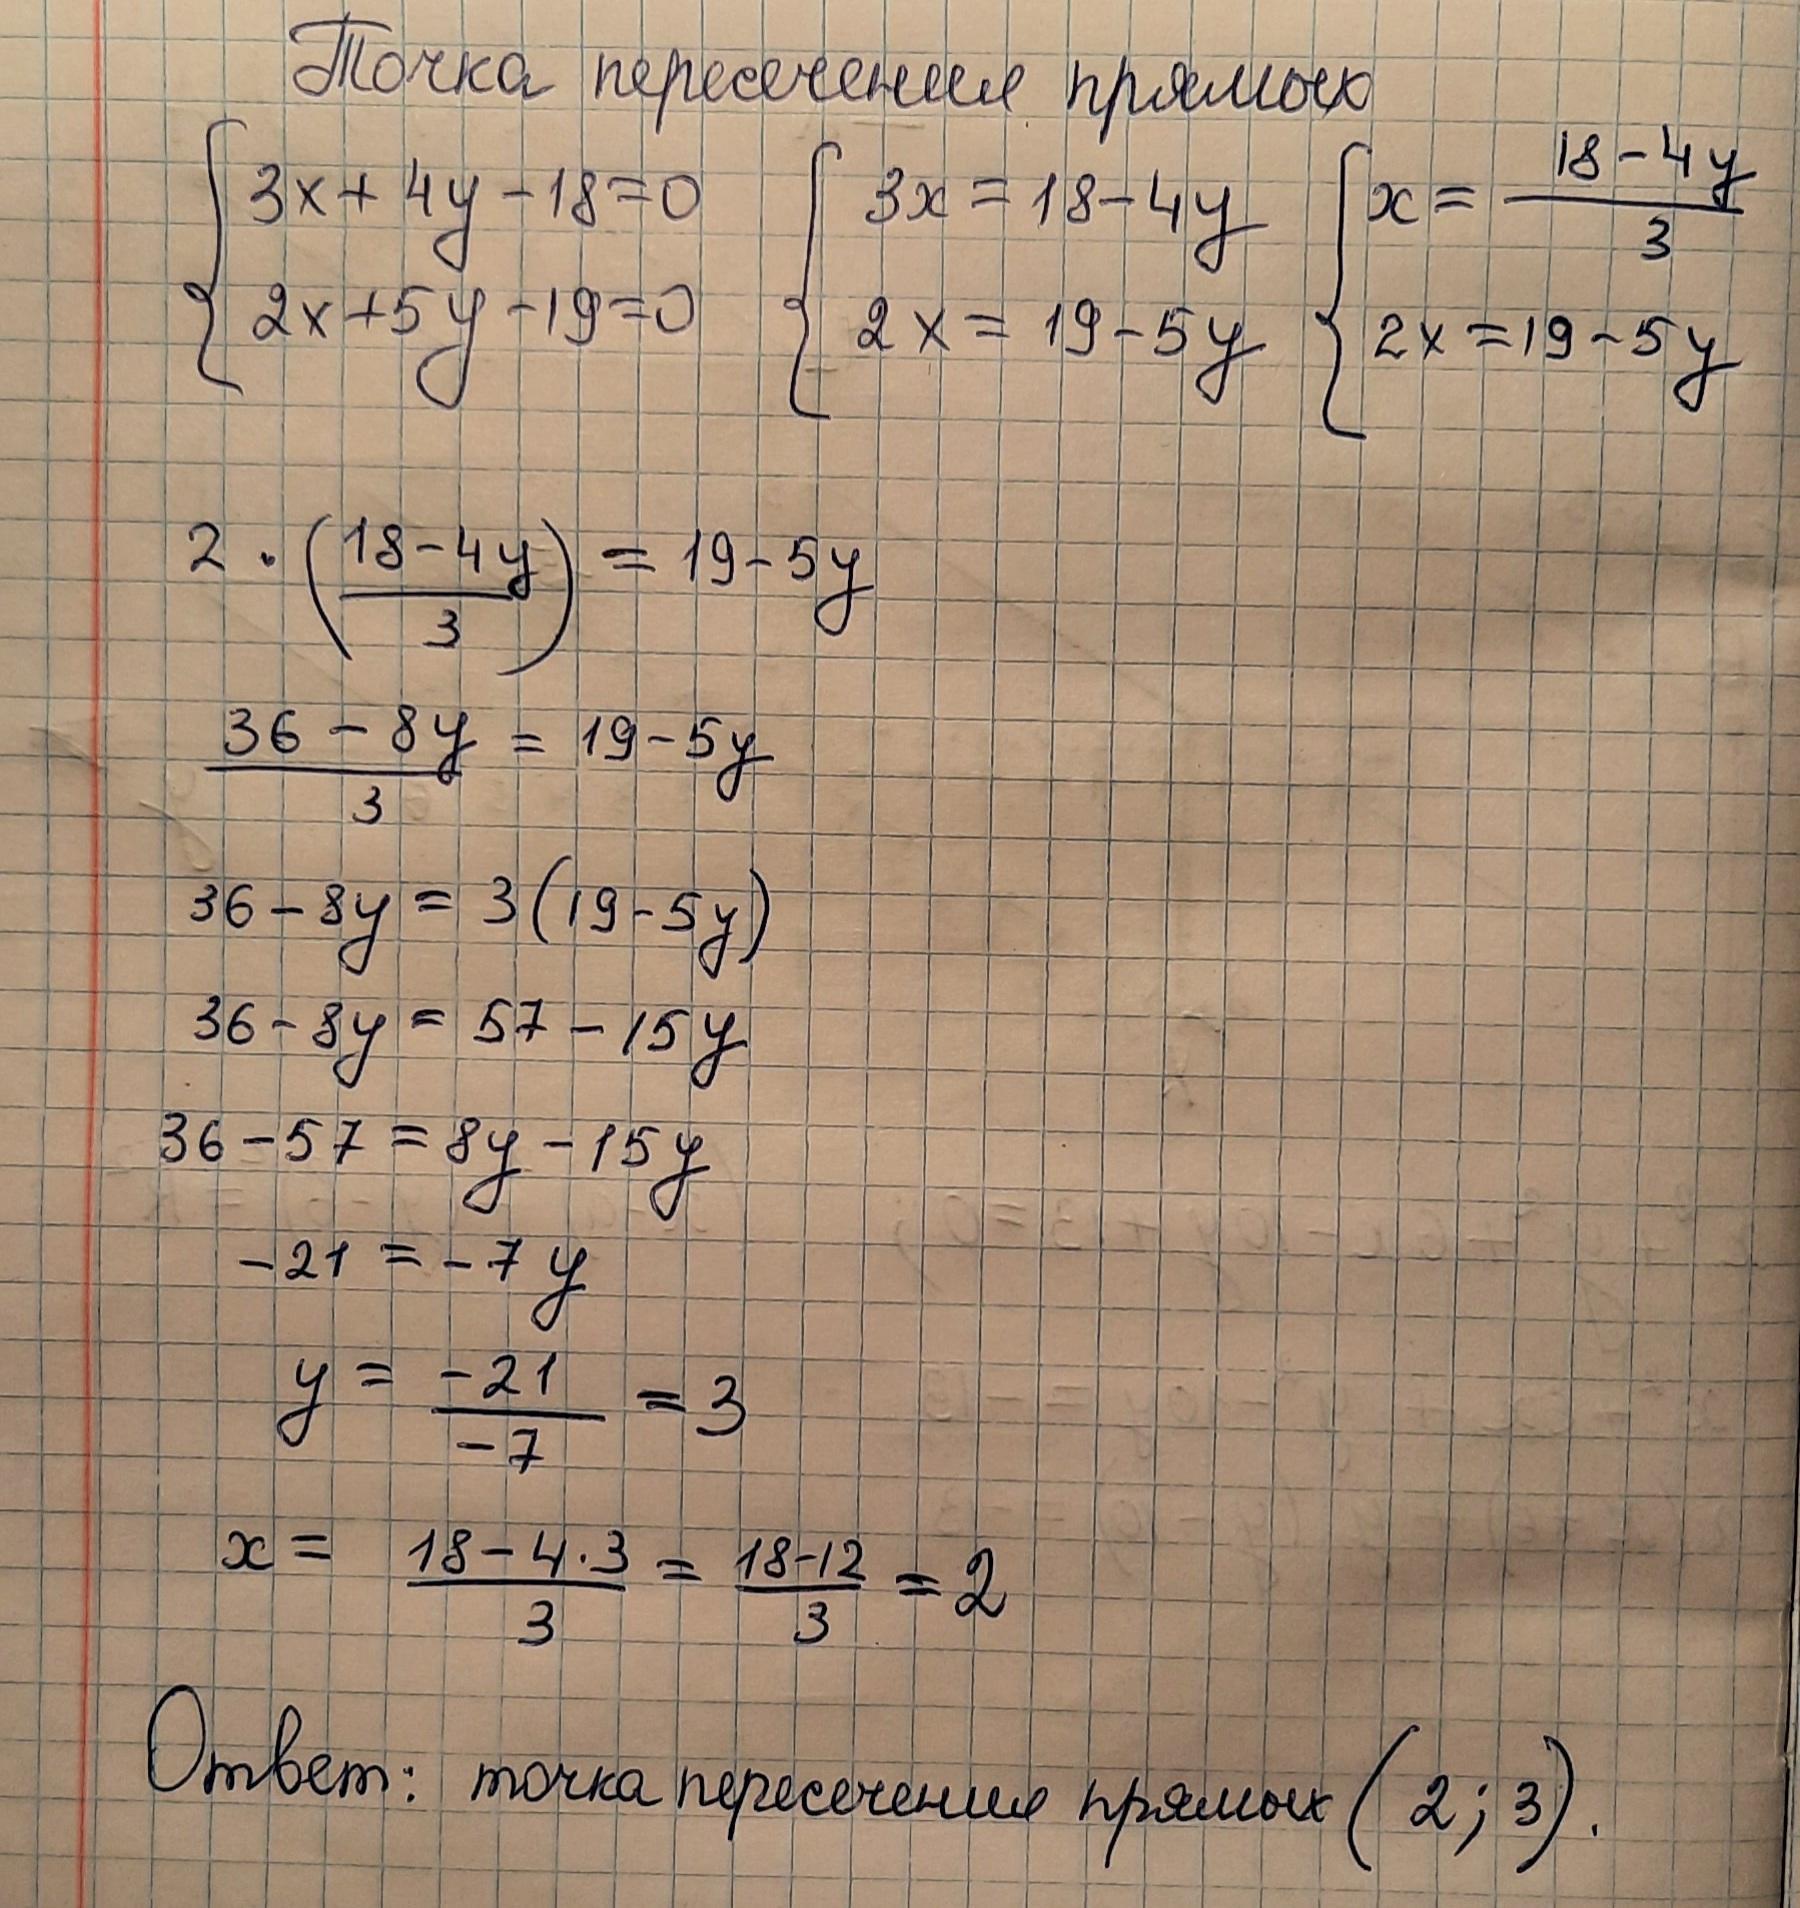 Точка пересечения прямых
{ 3x + 4y - 18 = 0 { 3x = 18 - 4y { x = (18 - 4y)/3
{ 2x + 5y - 19 = 0 { 2x = 19 - 5y { 2x = 19 - 5y
2 · ((18 - 4y)/3) = 19 - 5y
(36 - 8y)/3 = 19 - 5y
36 - 8y = 3(19 - 5y)
36 - 8y = 57 - 15y
36 - 57 = 8y - 15y
-21 = -7y
y = -21/-7 = 3
x = (18 - 4·3)/3 = (18-12)/3 = 2
Ответ: точка пересечения прямых (2; 3).